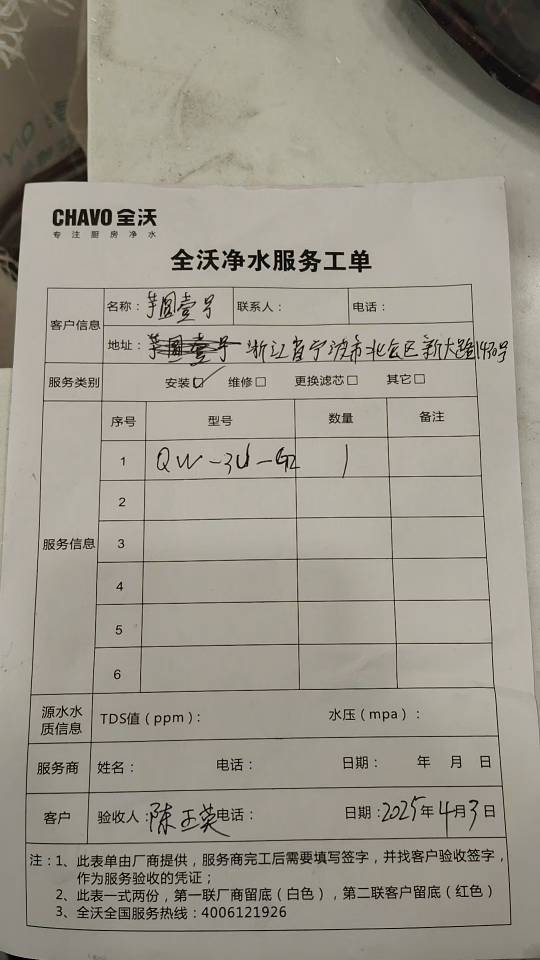 CHAVO 全沃
专注厨房净水
全沃净水服务工单
客户信息 名称：芋圆壹号 联系人： 电话：
地址： 浙江省宁波市北仑区新大路1470号
服务类别 安装☑ 维修□ 更换滤芯□ 其它□
服务信息 序号 型号 数量 备注
1 QW-3U-G2 1
2
3
4
5
6
源水水质信息 TDS值（ppm）： 水压（mpa）：
服务商 姓名： 电话： 日期： 年 月 日
客户 验收人：陈正英 电话： 日期：2025年4月3日
注：1、此表单由厂商提供，服务商完工后需要填写签字，并找客户验收签字，
作为服务验收的凭证；
2、此表一式两份，第一联厂商留底（白色），第二联客户留底（红色）
3、全沃全国服务热线：4006121926